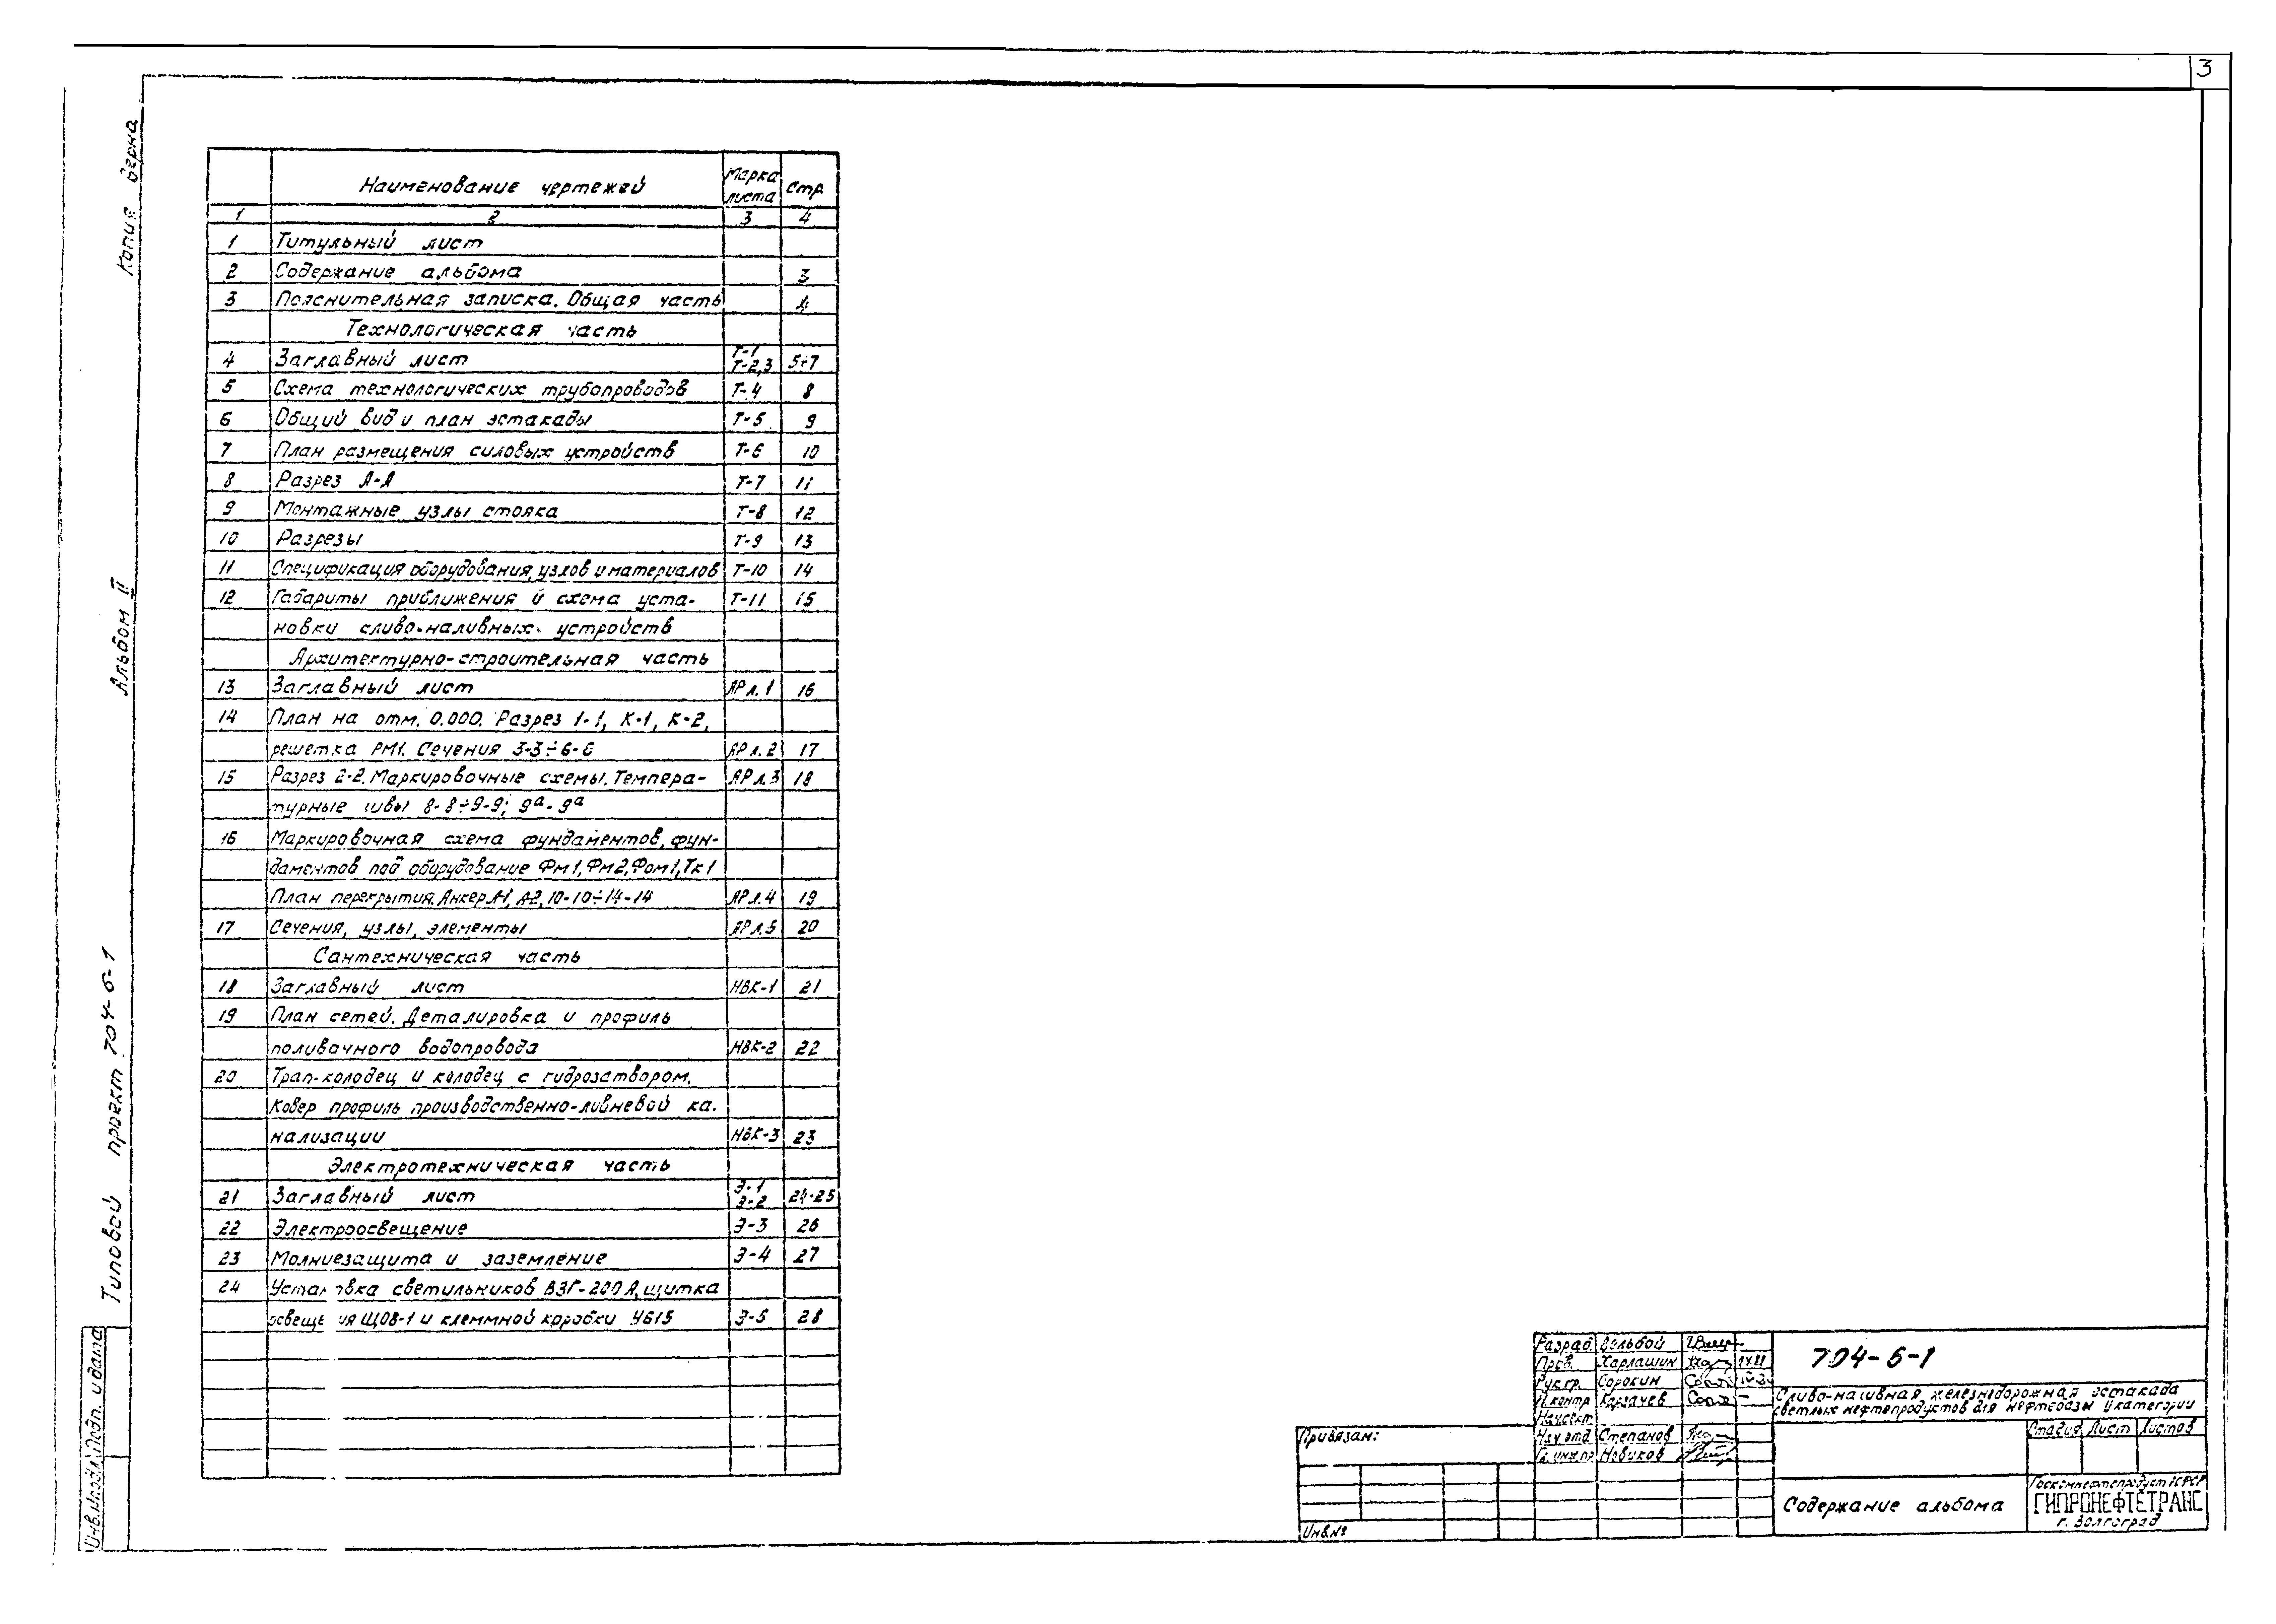 3
Копия верна
Альбом II
Типовой проект 704-5-1
Инв.№подл. Подп. и дата
Наименование чертежей Марка листа Стр
1 2 3 4
1 Титульный лист
2 Содержание альбома 3
3 Пояснительная записка. Общая часть 4
Технологическая часть
4 Заглавный лист Т-1 Т-2,3 5÷7
5 Схема технологических трубопроводов Т-4 8
6 Общий вид и план эстакады Т-5 9
7 План размещения силовых устройств Т-6 10
8 Разрез А-А Т-7 11
9 Монтажные узлы стояка Т-8 12
10 Разрезы Т-9 13
11 Спецификация оборудования, узлов и материалов Т-10 14
12 Габариты приближения и схема уста- Т-11 15
новки сливо-наливных устройств
Архитектурно-строительная часть
13 Заглавный лист АР л.1 16
14 План на отм. 0.000. Разрез 1-1, К-1, К-2,
решетка РМ1. Сечения 3-3÷6-6 АР л.2 17
15 Разрез 2-2. Маркировочные схемы. Темпера- АР л.3 18
турные швы 8-8÷9-9; 9а-9а
16 Маркировочная схема фундаментов, фун-
даментов под оборудование Фм1, Фм2, Фом1, Тк1
План перекрытия. Анкер А-1, А-2, 10-10÷14-14 АР л.4 19
17 Сечения, узлы, элементы АР л.5 20
Сантехническая часть
18 Заглавный лист НВК-1 21
19 План сетей. Деталировка и профиль
поливочного водопровода НВК-2 22
20 Трап-колодец и колодец с гидрозатвором.
Ковер профиль производственно-ливневой ка-
нализации НВК-3 23
Электротехническая часть
21 Заглавный лист Э-1 Э-2 24-25
22 Электроосвещение Э-3 26
23 Молниезащита и заземление Э-4 27
24 Установка светильников ВЗГ-200А, щитка
освещения ЩОВ-1 и клеммной коробки У615 Э-5 28
Разраб.
Пров. Харлашин
Рук.гр. Сорокин
Н.контр Карзачев
Нач.сект.
Нач.отд Степанов
Гл. инж.пр Новиков
704-5-1
Сливо-наливная железнодорожная эстакада
светлых нефтепродуктов для нефтебазы II категории
Стадия Лист Листов
Привязан:
Инв.№
Содержание альбома
Госкомнефтепродукт РСФСР
ГИПРОНЕФТЕТРАНС
г. Волгоград